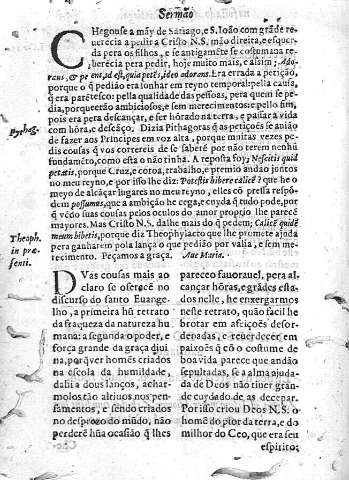 Sermão
CHegouse a mãy de Satiago, e S. Ioão com grãde re-
uerēcia a pedir a Cristo N.S. mão direita, e esquer-
da pera os filhos, e se antigamēte se costumaua re-
uerēcia pera pedir, hoje muito mais, e assim; Ado-
rans, & petens, id est, quia petēs, ideo adorans. Era errada a petição,
porque o q̃ pedião era lonhar em reyno temporal: pella causa,
q̃ era parētesco: pella qualidade das pessoas, pera quem se pe-
dia, porque erão ambiciosos, e sem merecimentos: e pello fim,
pois era pera descançar, e ser hõrado na terra, e passar a vida
Pythag.
com hõra, e descãço. Dizia Pithagoras q̃ as petições se aniáo
de fazer aos Principes em voz alta, porque muitas vezes pe-
dis cousas q̃ vos correreis de se saberē por não terem nenhū
fundamēto, como esta o não tinha. A reposta foy; Nescitis quid
petatis, porque Cruz, e coroa, trabalho, e premio andão juntos
no meu reyno, e por isso lhe diz: Potestis bibere calicē? que he o
meyo de alcãçar lugares no meu reyno, elles cõ pressa respõ-
dem possumus, que a ambição he cega, e cuyda q̃ tudo pode, por
q̃ vēdo suas cousas pelos oculos do amor proprio lhe parecē
mayores. Mas Cristo N.S. dalhe mais do q̃ pedem; Calicē quidē
Theoph.
in præ-
senti.
meum bibetis, porque diz Theophylacto que lhe promete ajuda
pera ganharem pola lança o que pedião por valia, e sem me-
recimento. Peçamos a graça. Aue Maria.
DVas cousas mais ao
claro se oferecē no
discurso do santo Euange-
lho, a primeira hū retrato
da fraqueza da natureza hu
mana: a segunda o poder, e
força grande da graça diui
na, porq̃ ver homēs criados
na escola da humildade,
dahi a dous lanços, achar-
molos tão altiuos nos pen-
samentos, e sendo criados
no desprezo do mūdo, não
perderē hūa ocasião q̃ lhes
pareceo fauorauel, pera al-
cançar hõras, e grãdes esta-
dos nelle, he enxergarmos
neste retrato, quão facil he
brotar em afeições desor-
denadas, e reuerdecer em
paixões q̃ cõ o costume de
boa vida parece que andão
sepultadas, se a alma ajuda-
da de Deos não tiuer gran-
de cuydado de as decepar.
Por isso criou Deos N.S. o
homē do pior da terra, e do
milhor do Ceo, que era seu
espirito;